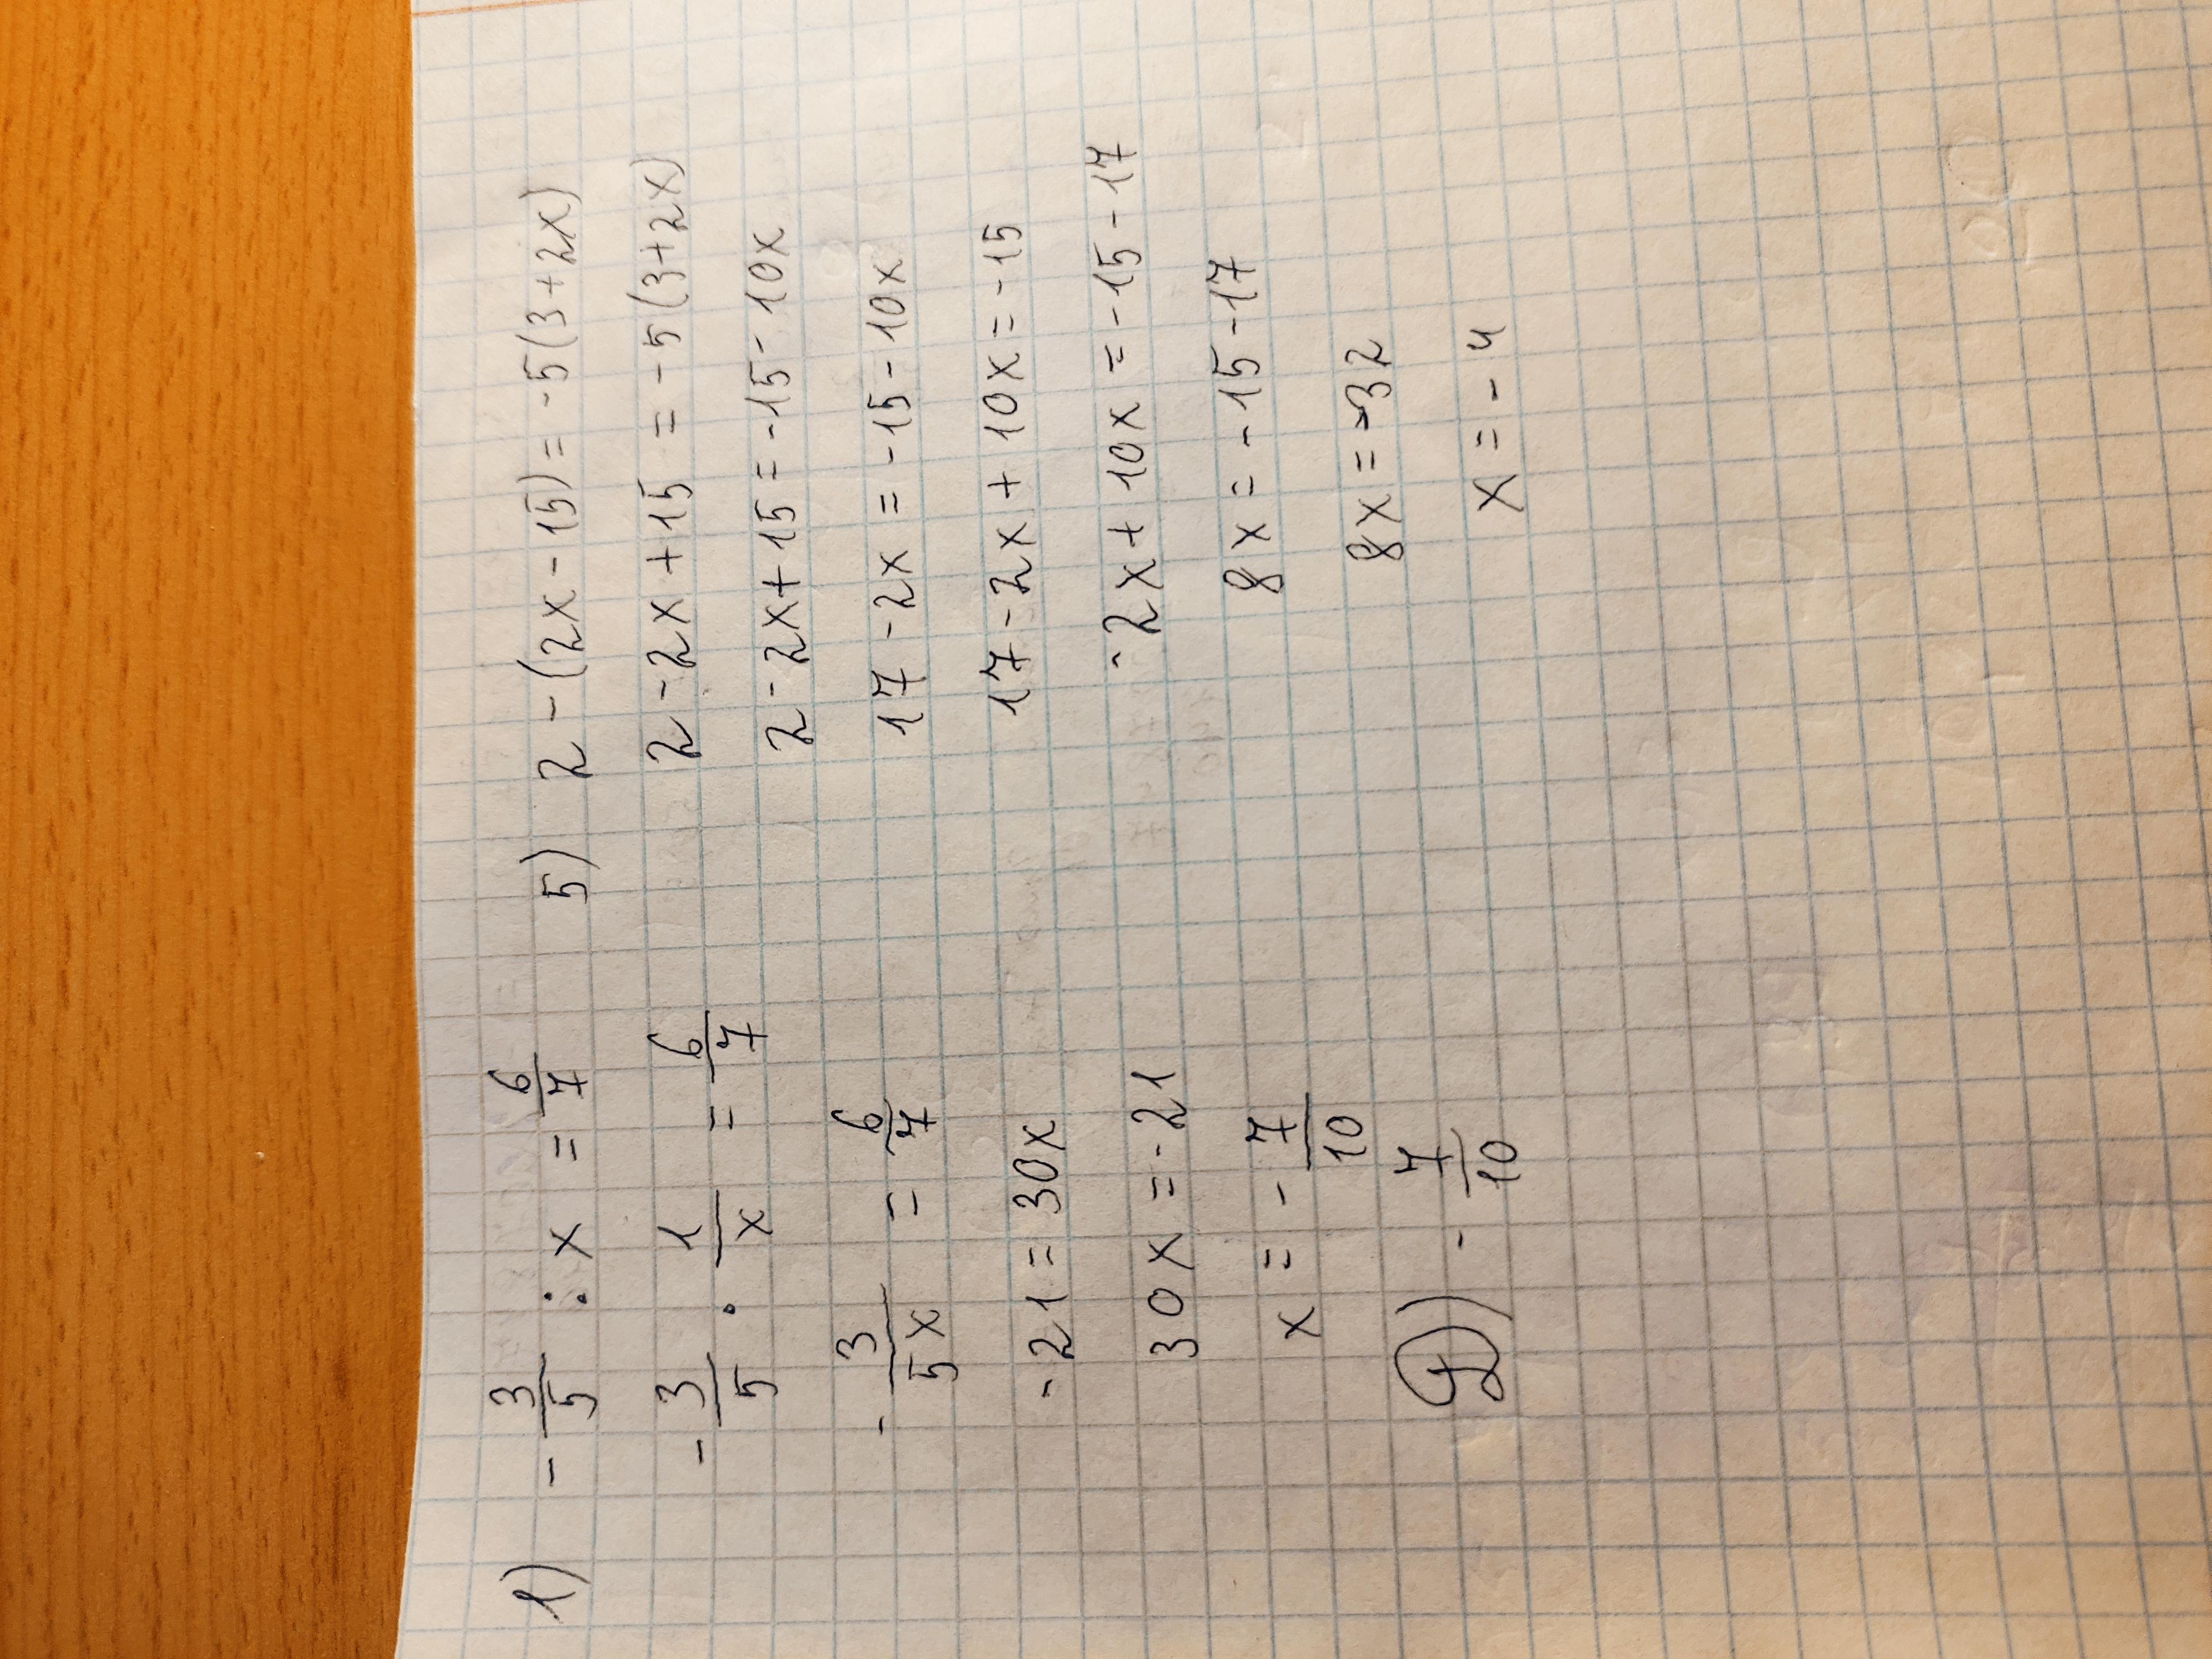 1) - 3/5 : x = 6/7
- 3/5 · 1/x = 6/7
- 3/5x = 6/7
-21 = 30x
30x = -21
x = - 7/10
- 7/10
5) 2 - (2x - 15) = -5(3+2x)
2 - 2x + 15 = -5(3+2x)
2 - 2x + 15 = -15 - 10x
17 - 2x = -15 - 10x
17 - 2x + 10x = -15
-2x + 10x = -15 - 17
8x = -15 - 17
8x = -32
x = -4